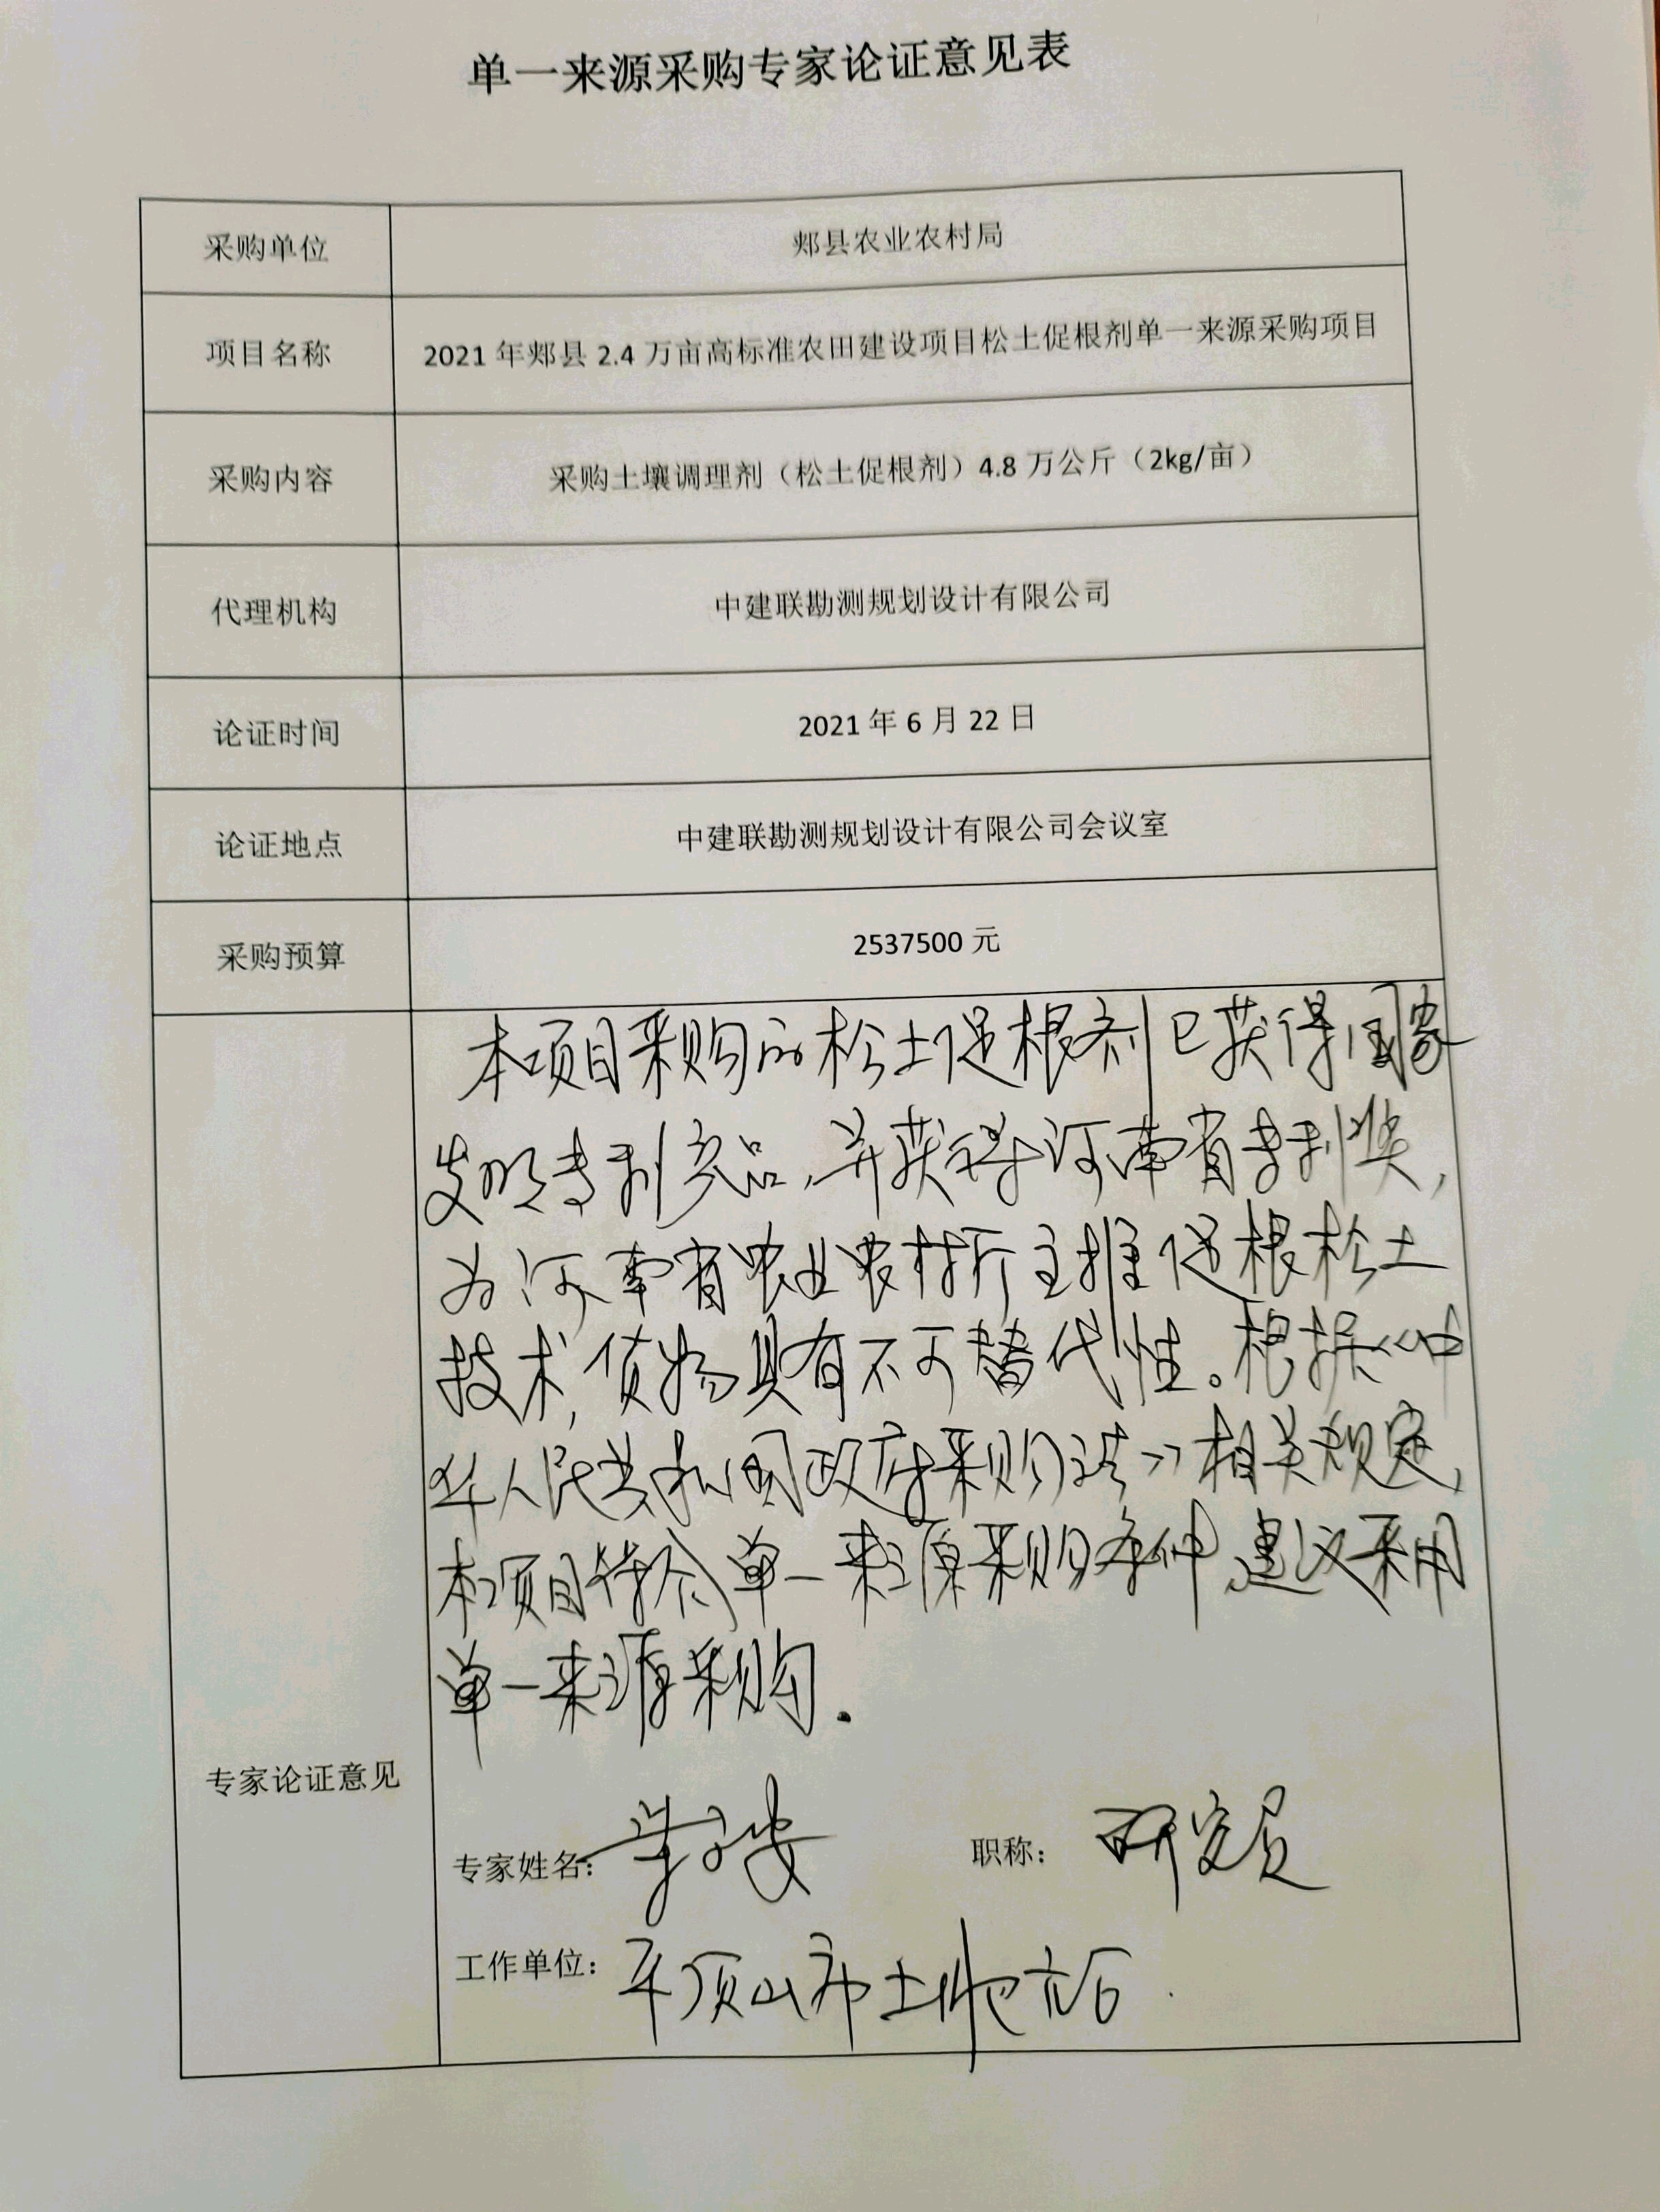 单一来源采购专家论证意见表
采购单位 郏县农业农村局
项目名称 2021年郏县2.4万亩高标准农田建设项目松土促根剂单一来源采购项目
采购内容 采购土壤调理剂（松土促根剂）4.8万公斤（2kg/亩）
代理机构 中建联勘测规划设计有限公司
论证时间 2021年6月22日
论证地点 中建联勘测规划设计有限公司会议室
采购预算 2537500元
本项目采购的松土促根剂已获得国家
发明专利产品，并获得河南省专利奖，
为河南省农业农村厅主推促根松土
技术，货物具有不可替代性。根据《中
华人民共和国政府采购法》相关规定，
本项目符合单一来源采购条件，建议采用
单一来源采购.
专家论证意见
专家姓名： 职称：研究员
工作单位：平顶山市土肥站